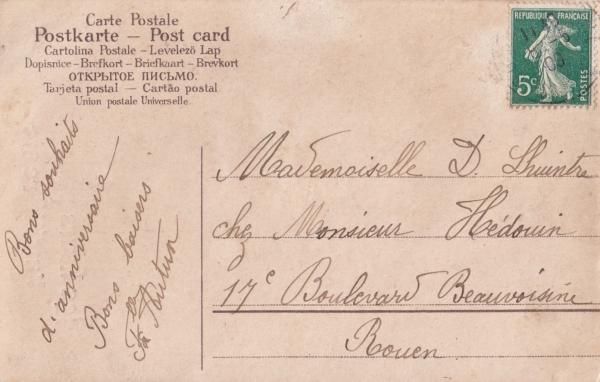 Carte Postale
Postkarte — Post card
Cartolina Postale – Levelező Lap
Dopisnice – Brefkort – Briefkaart – Brevkort
ОТКРЫТОЕ ПИСЬМО.
Tarjeta postal — Cartão postal
Union postale Universelle.
RÉPUBLIQUE FRANÇAISE
5c
POSTES
Bons souhaits
d'anniversaire
Bons baisers
Mademoiselle D. Lhuintre
chez Monsieur Hédouin
17e Boulevard Beauvoisine
Rouen